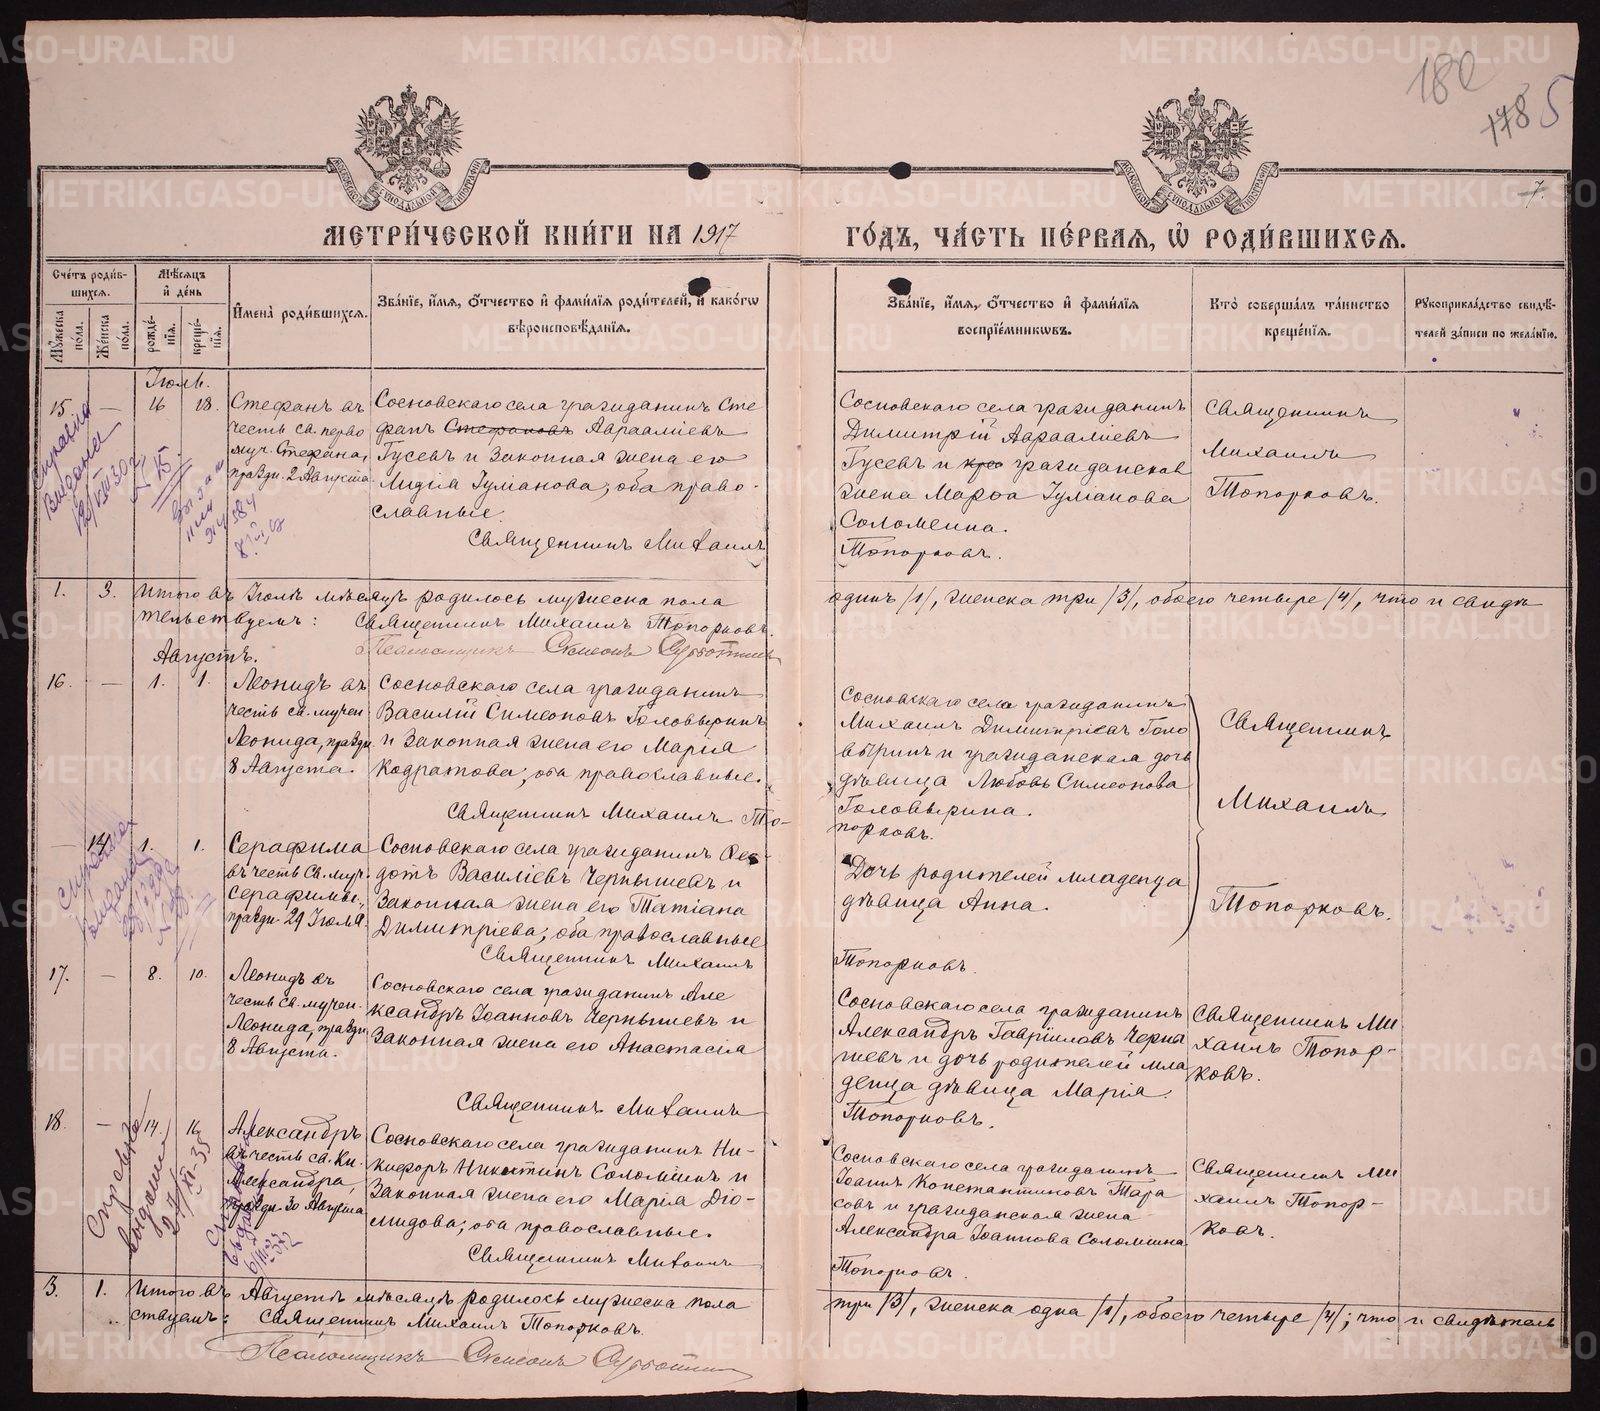 180
178 5
7.
МЕТРИ́ЧЕСКОЙ КНИ́ГИ НА 1917
ГО́ДЪ, ЧА́СТЬ ПЕ́РВАЯ, Ѡ҆ РОДИ́ВШИХСЯ.
Сче́тъ роди́вшихся.
Мѣ́сяцъ и҆ де́нь
Мꙋ́жеска по́ла.
Же́нска по́ла.
рожде́нїя.
креще́нїя.
И҆мена̀ роди́вшихся.
Зва́нїе, и҆́мя, ѻ҆́тчество и҆ фами́лїя роди́телей, и҆ како́гѡ
вѣроисповѣ́данїя.
Зва́нїе, и҆́мя, ѻ҆́тчество и҆ фами́лїя
воспрїе́мникѡвъ.
Кто̀ соверша́лъ та́инство
креще́нїя.
Рꙋкоприкла́дство свидѣ́-
телей за́писи по жела́нїю.
Іюль.
15. — 16 18.
Стефанъ въ
честь св. перво
муч. Стефана,
праздн. 2 Августа.
Сосновскаго села гражданинъ Сте
фанъ Стефановъ Авраамїевъ
Гусевъ и законная жена его
Лидїа Іуліанова; оба право-
славные.
Священникъ Михаилъ
Сосновскаго села гражданинъ
Димитрїй Авраамїевъ
Гусевъ и кре гражданская
жена Марѳа Іуліанова
Соломеина.
Топорковъ.
Священникъ
Михаилъ
Топорковъ.
Справка
Выдана
1. 3. Итого въ Іюлѣ мѣсяцѣ родилось мужеска пола
одинъ /1/, женска три /3/, обоего четыре /4/, что и свидѣ
тельствуемъ: Священникъ Михаилъ Топорковъ.
Псаломщикъ Симеонъ Субботинъ
Августъ.
16. — 1. 1.
Леонидъ въ
честь св. мучен
Леонида, праздн.
8 Августа.
Сосновскаго села гражданинъ
Василїй Симеоновъ Головыринъ
и законная жена его Марїа
Кодратова; оба православные.
Священникъ Михаилъ То-
Сосновскаго села гражданинъ
Михаилъ Димитрїевъ Голо
выринъ и гражданская дочь
дѣвица Любовь Симеонова
Головырина.
порковъ.
Священникъ
Михаилъ
Топорковъ.
— 14. 1. 1.
Серафима
въ честь св. муч.
Серафимы,
праздн. 29 Іюля.
Сосновскаго села гражданинъ Ѳео-
дотъ Василїевъ Чернышевъ и
законная жена его Татїана
Димитрїева; оба православные
Священникъ Михаилъ
Дочь родителей младенца
дѣвица Анна.
Топорковъ.
17. — 8. 10.
Леонидъ въ
честь св. мучен.
Леонида, праздн.
8 Августа.
Сосновскаго села гражданинъ Але
ксандръ Іоанновъ Чернышевъ и
законная жена его Анастасїа
Священникъ Михаилъ
Сосновскаго села гражданинъ
Александръ Гаврїиловъ Черны
шевъ и дочь родителей мла
денца дѣвица Марїя.
Топорковъ.
Священникъ Ми
хаилъ Топор-
ковъ.
18. — 14. 16
Александръ
въ честь св. Кн.
Александра,
праздн. 30 Августа
Сосновскаго села гражданинъ Ни-
кифоръ Никитинъ Соломинъ и
законная жена его Марїа Дїо-
мидова; оба православные.
Священникъ Михаилъ
Сосновскаго села гражданинъ
Іоаннъ Константиновъ Тара
совъ и гражданская жена
Александра Іоаннова Соломина.
Топорковъ.
Священникъ Ми
хаилъ Топор-
ковъ.
Справка
выдана
27/VI-35
3. 1. Итого въ Августѣ мѣсяцѣ родилось мужеска пола
три /3/, женска одна /1/, обоего четыре /4/; что и свидѣтель
ствуемъ: Священникъ Михаилъ Топорковъ.
Псаломщикъ Симеонъ Субботинъ
METRIKI.GASO-URAL.RU